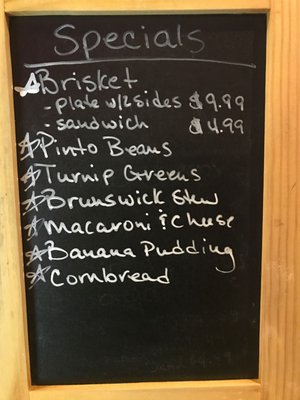 Specials
☆Brisket
-plate w/2 sides $9.99
-sandwich $4.99
☆Pinto Beans
☆Turnip Greens
☆Brunswick Stew
☆Macaroni & Cheese
☆Banana Pudding
☆Cornbread